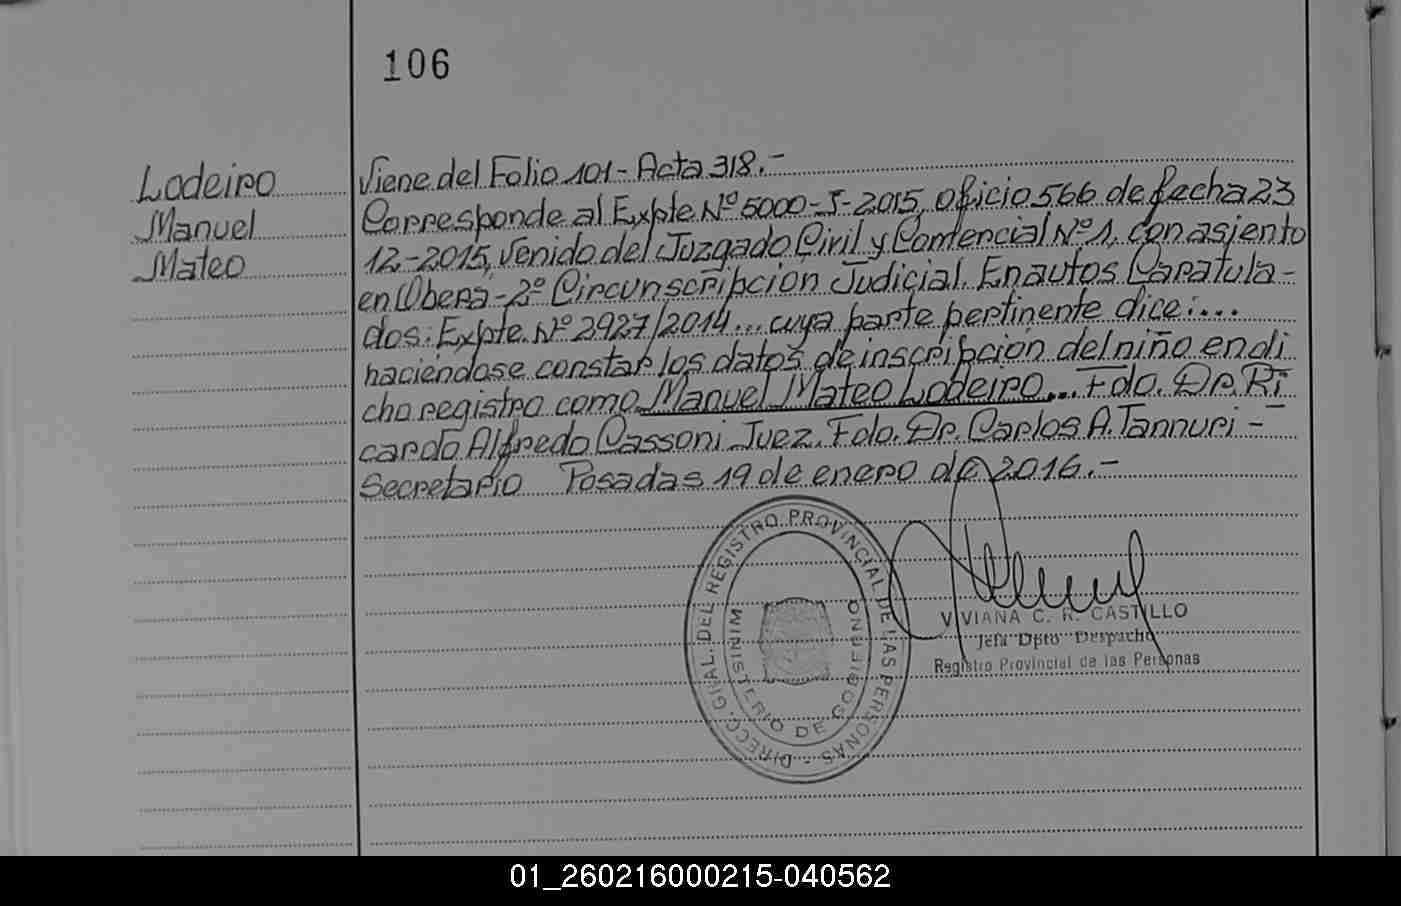 106
Lodeiro
Manuel
Mateo
Viene del Folio 101 - Acta 318.-
Corresponde al Expte Nº 5000-J-2015, oficio 566 de fecha 23
12-2015, venido del Juzgado Civil y Comercial Nº 1, con asiento
en Oberá - 2º Circunscripción Judicial. En autos Caratula-
dos: Expte. Nº 2927/2014... cuya parte pertinente dice:...
haciéndose constar los datos de inscripción del niño en di
cho registro como Manuel Mateo Lodeiro... Fdo. Dr. Ri
cardo Alfredo Cassoni Juez. Fdo. Dr. Carlos A. Tannuri -
Secretario Posadas 19 de enero de 2016.-
DIRECC. GRAL. DEL REGISTRO PROVINCIAL DE LAS PERSONAS
MINISTERIO DE GOBIERNO
VIVIANA C. R. CASTILLO
Jefa Dpto Despacho
Registro Provincial de las Personas
01_260216000215-040562